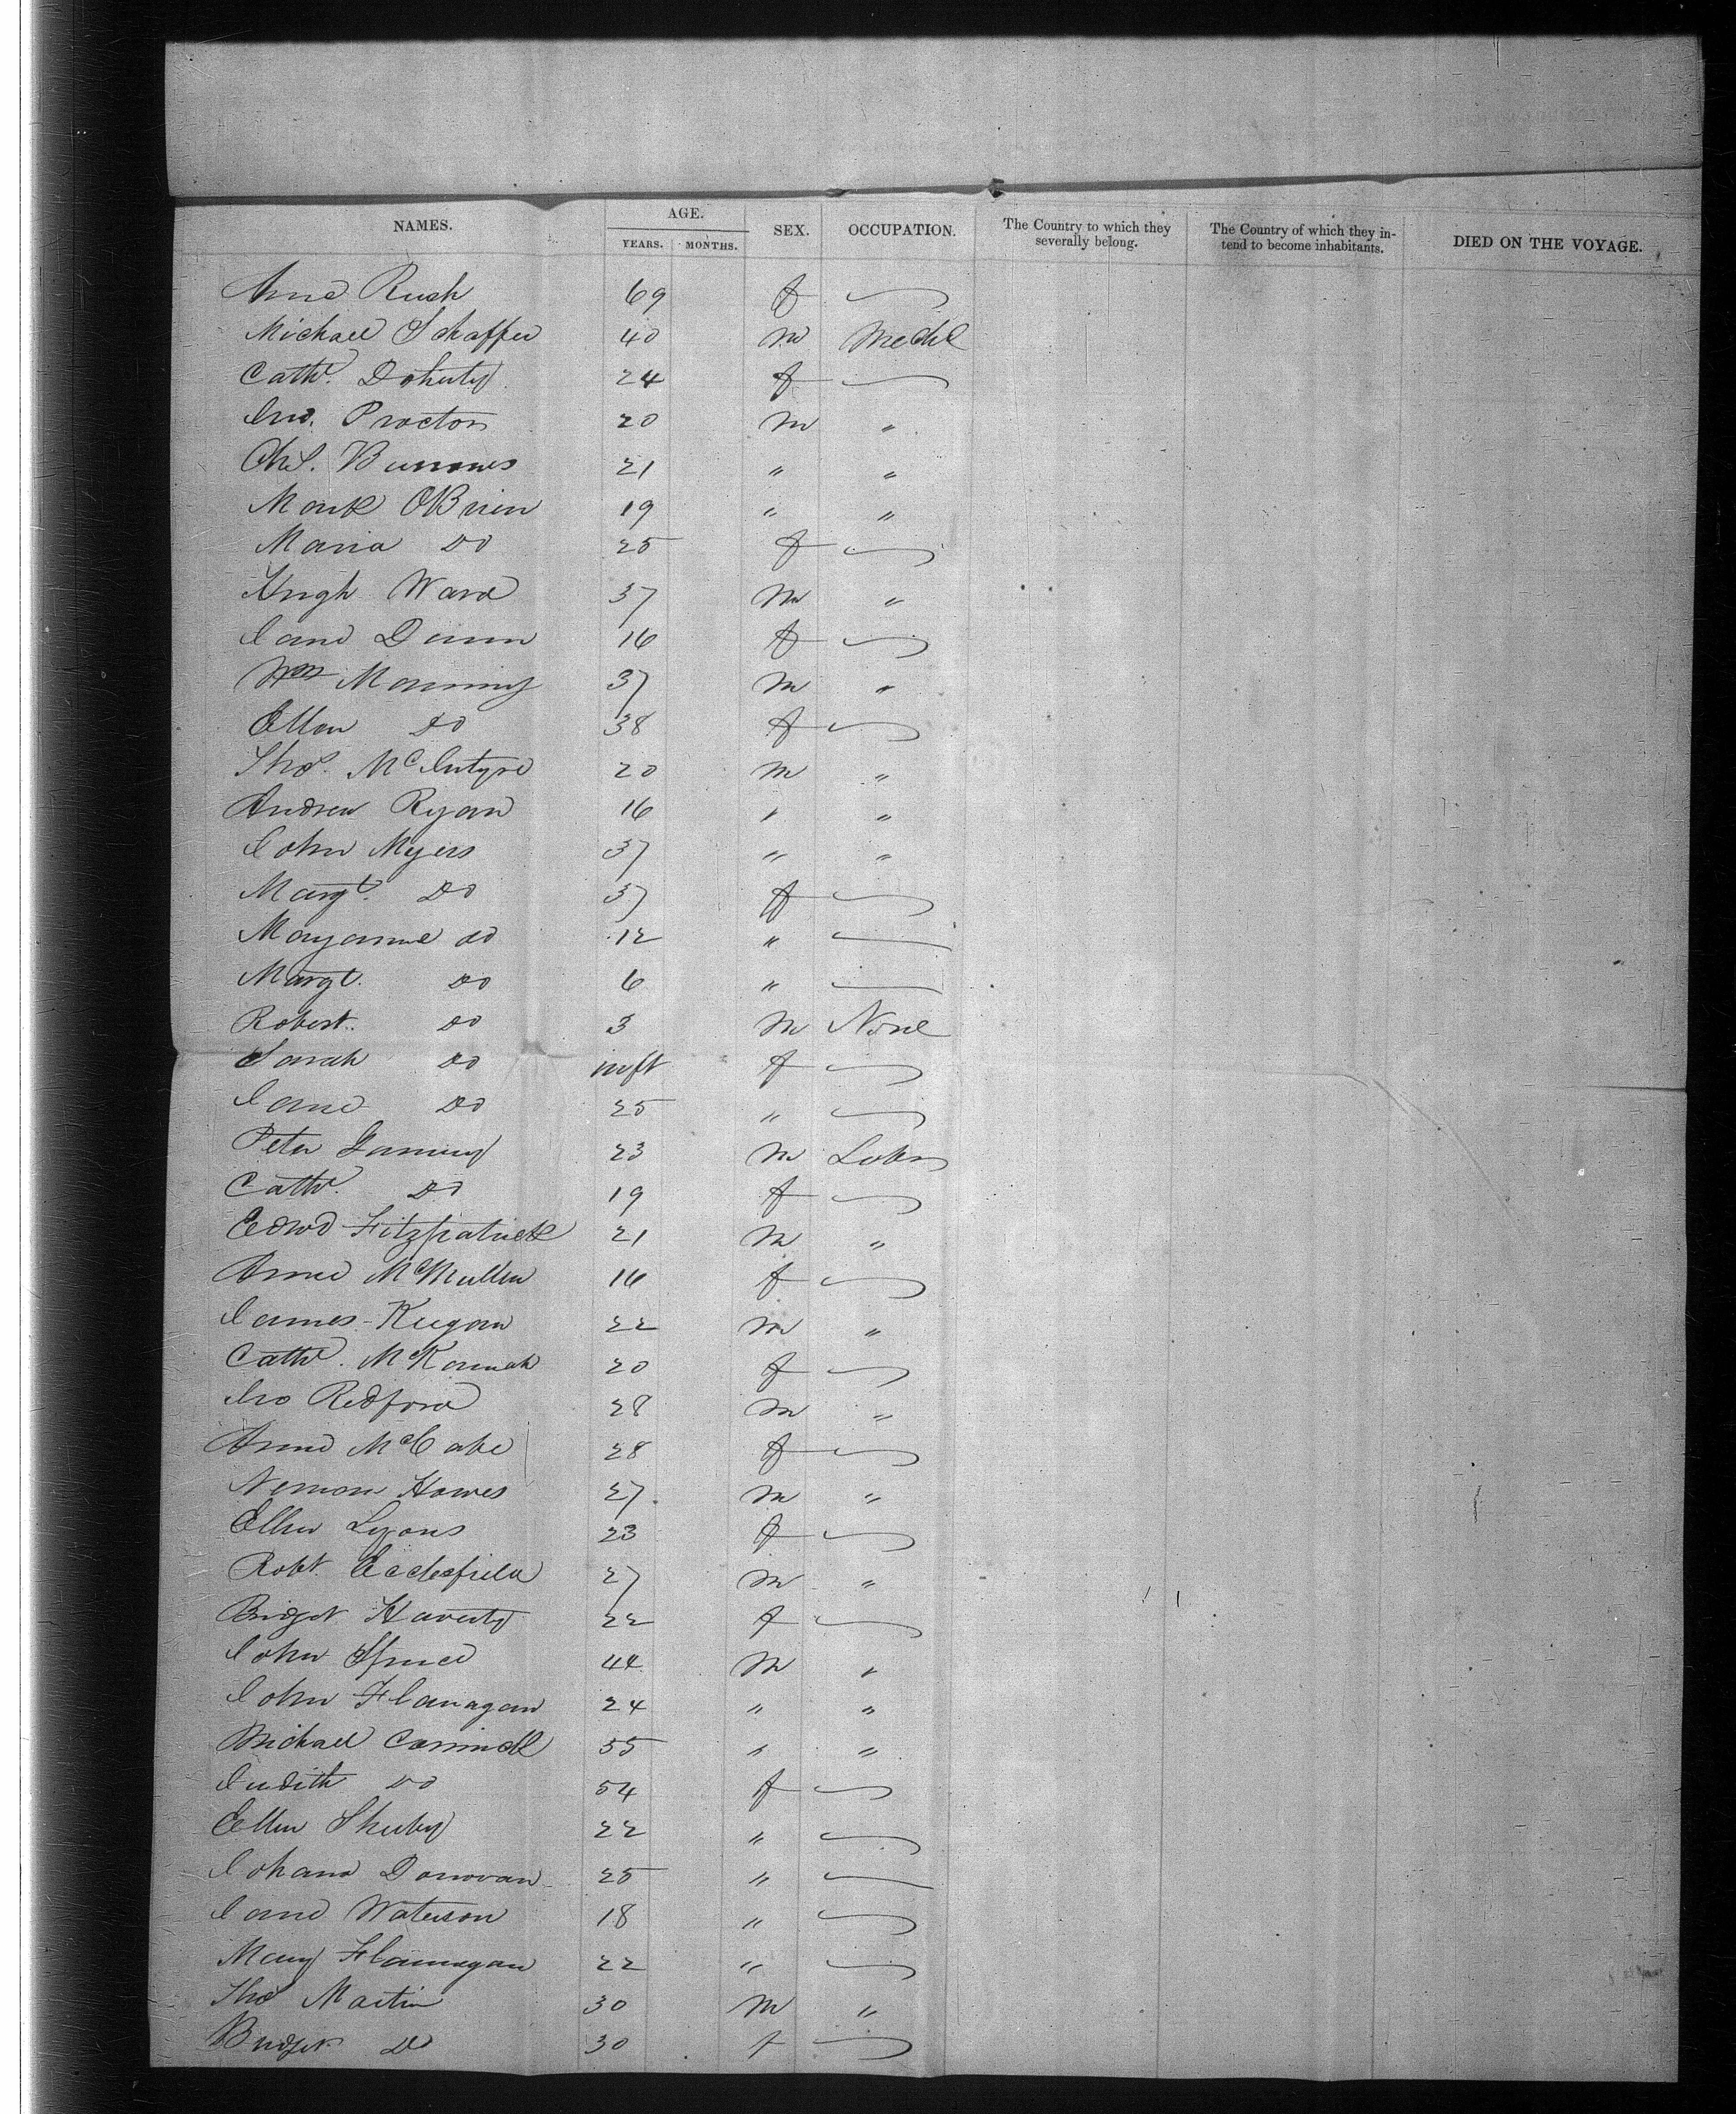 NAMES. AGE. SEX. OCCUPATION. The Country to which they severally belong. The Country of which they in- tend to become inhabitants. DIED ON THE VOYAGE.
YEARS. MONTHS.
Anne Rush 69 f
Michael Schaffer 40 m Mechc
Cathe. Doherty 24 f
Jno. Proctor 20 m "
Chs. Burrows 21 " "
Mark OBrien 19 " "
Maria Do 25 f
Hugh Ward 37 m "
Jane Dunn 16 f
Wm Manning 37 m "
Ellen Do 38 f
Thos. McIntyre 20 m "
Andrew Ryan 16 " "
John Myers 37 " "
Margt. Do 37 f
Maryanne do 12 "
Margt. Do 6 "
Robert. Do 3 m None
Sarah Do inft f
Jane Do 25 "
Peter 23 m Labr
Cathe. Do 19 f
Edwd Fitzpatrick 21 m "
Anne McMullen 16 f
James Keegan 22 m "
Cathe. McKannah 20 f
Jno Redford 28 m "
Anne McCabe 28 f
Vernon Howes 27 m "
Ellen Lyons 23 f
Robt. Ecclesfield 27 m "
Bridget Haverty 22 f
John Spruce 44 m "
John Flanagan 24 " "
Michael 55 " "
Judith Do 54 f
Ellen Sheehy 22 "
Johana Donovan 25 "
Jane Waterson 18 "
Mary Flannagan 22 "
Thos Martin 30 m "
Bridget Do 30 f